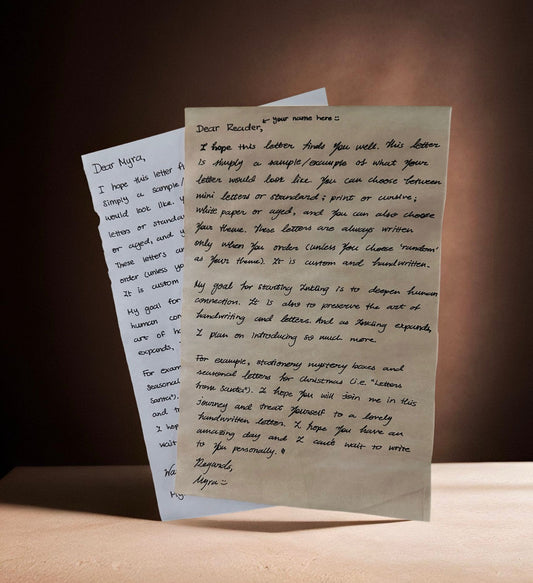 Dear Myra,
I hope this letter f
simply a sample/
would look like. Y
letters or standa
or aged, and y
These letters a
order (unless yo
It is custom
My goal for
human con
art of ha
expands,
For exam
seasonal
Santa").
and t
I hop
wait
Wa
My
← your name here :)
Dear Reader,
I hope this letter finds you well. This letter
is simply a sample/example of what your
letter would look like. You can choose between
mini letters or standard; print or cursive;
white paper or aged, and you can also choose
your theme. These letters are always written
only when you order (unless you choose 'random'
as your theme). It is custom and handwritten.
My goal for starting Inkling is to deepen human
connection. It is also to preserve the art of
handwriting and letters. And as Inkling expands,
I plan on introducing so much more.
For example, stationery mystery boxes and
seasonal letters for Christmas (i.e. "Letters
from Santa"). I hope you will join me in this
journey and treat yourself to a lovely
handwritten letter. I hope you have an
amazing day and I can't wait to write
to you personally.
Regards,
Myra :)